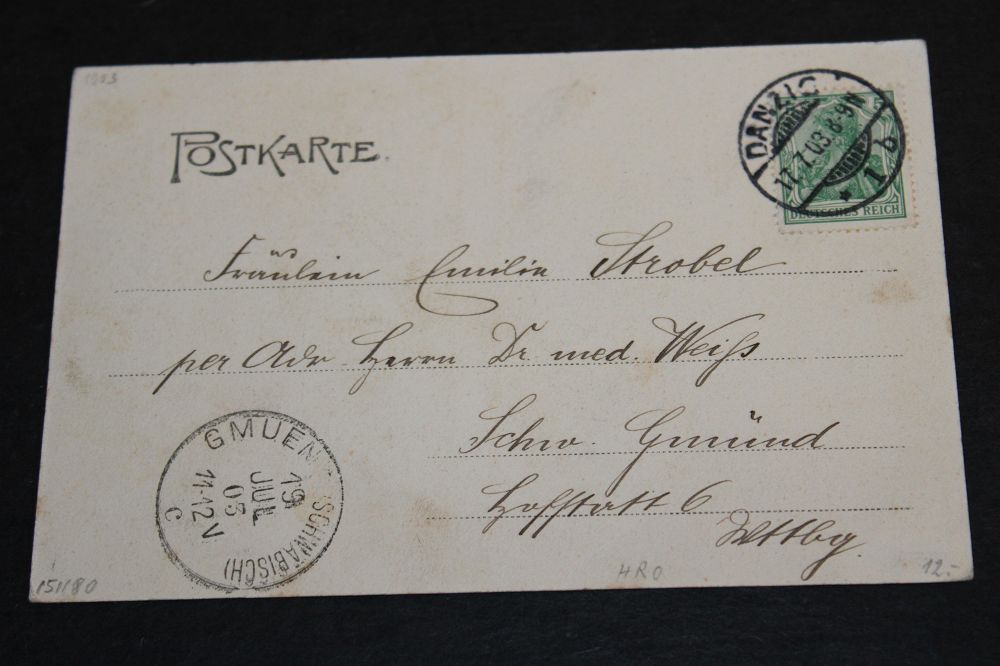 1903
POSTKARTE.
DANZIG
17.7.03.8-9N
* 1 b
DEUTSCHES REICH
Fräulein Emilie Strobel
per Adr. Herrn Dr. med. Weiß
Schw. Gmünd
Hofstatt 6
Wttbg.
GMUEN (SCHWÄBISCH)
19
JUL
03
11-12 N
C
151180
HRO
12.-